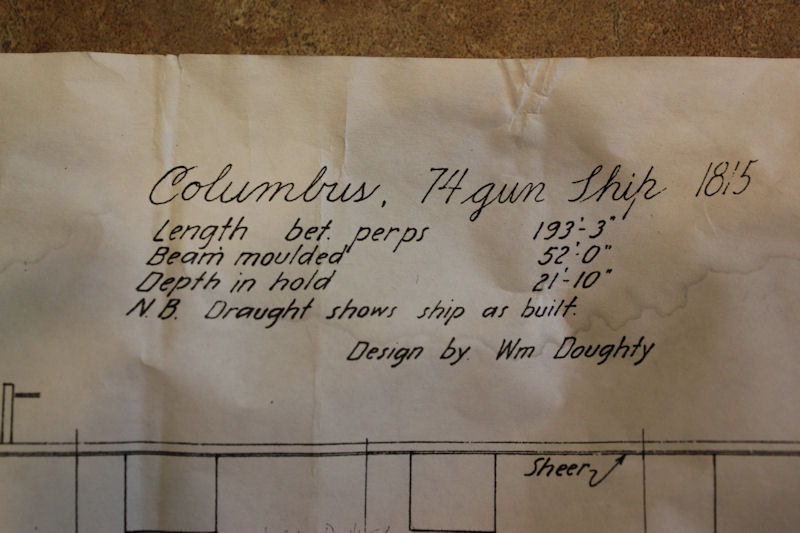 Columbus, 74 gun Ship 1815
Length bet. perps 193'-3"
Beam moulded 52'-0"
Depth in hold 21'-10"
N.B. Draught shows ship as built.
Design by Wm Doughty
Sheer